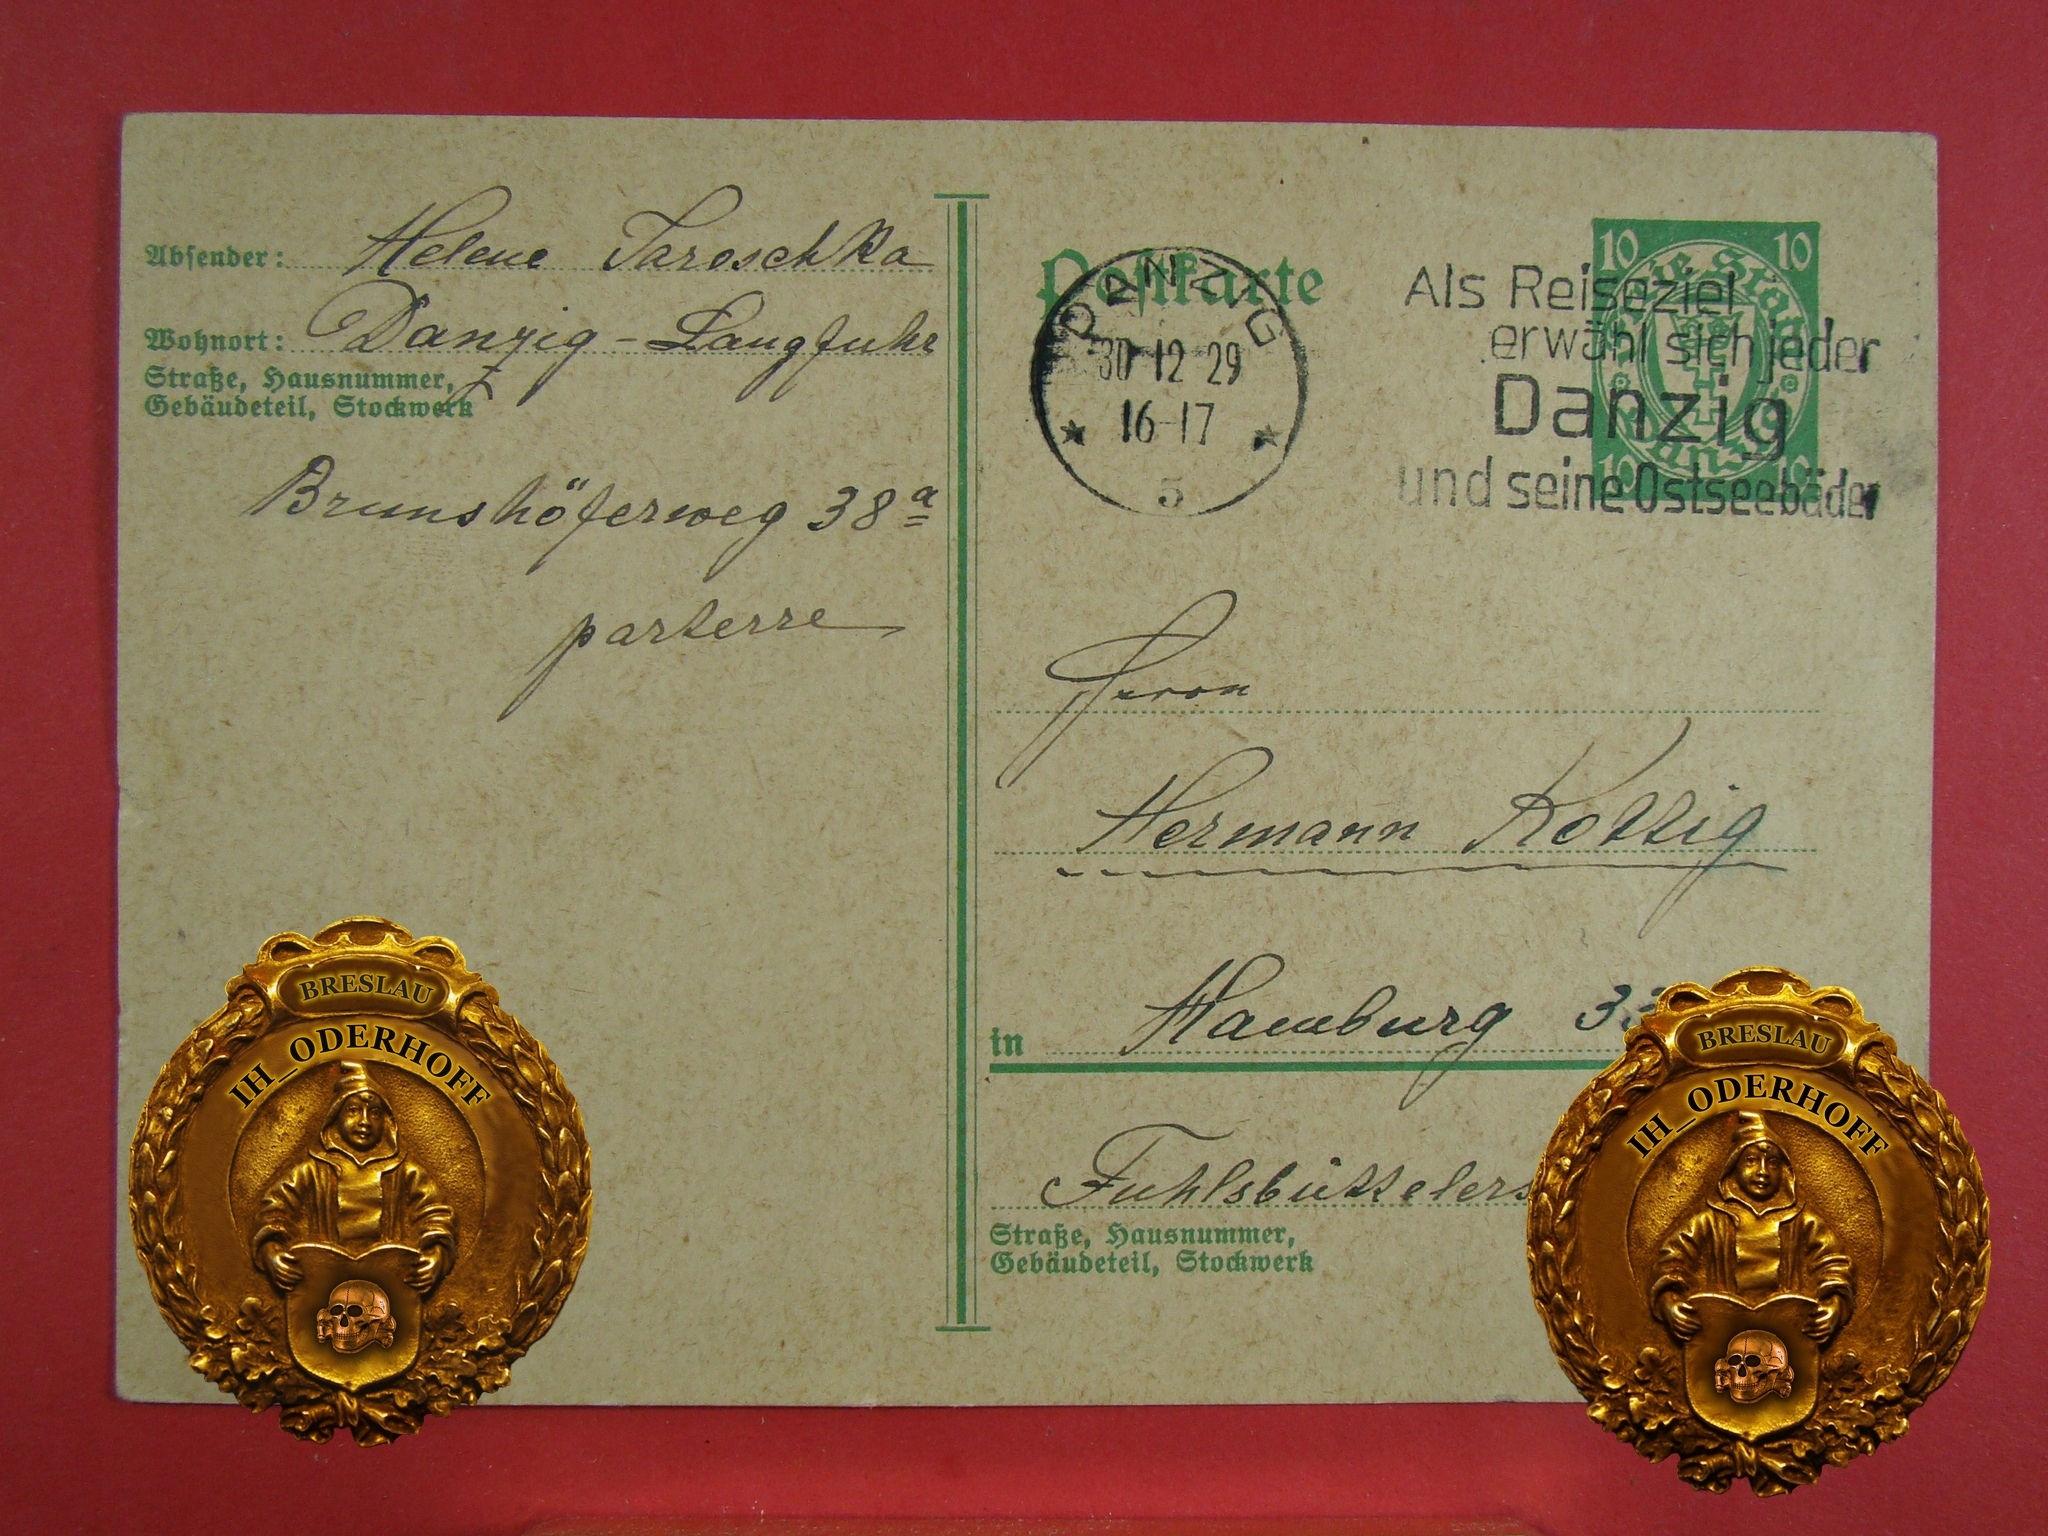 Absender: Helene Jaroschka
Wohnort: Danzig-Langfuhr
Straße, Hausnummer,
Gebäudeteil, Stockwerk
Brunshöferweg 38a
parterre
Postkarte
DANZIG
30-12-29
16-17
5
Als Reiseziel
erwähl sich jeder
Danzig
und seine Ostseebäder
10 10
Freie Stadt
Danzig
10 10
Herrn
Hermann Kotzig
in Hamburg 33
Fuhlsbüttelers
Straße, Hausnummer,
Gebäudeteil, Stockwerk
BRESLAU
IH_ODERHOFF
BRESLAU
IH_ODERHOFF